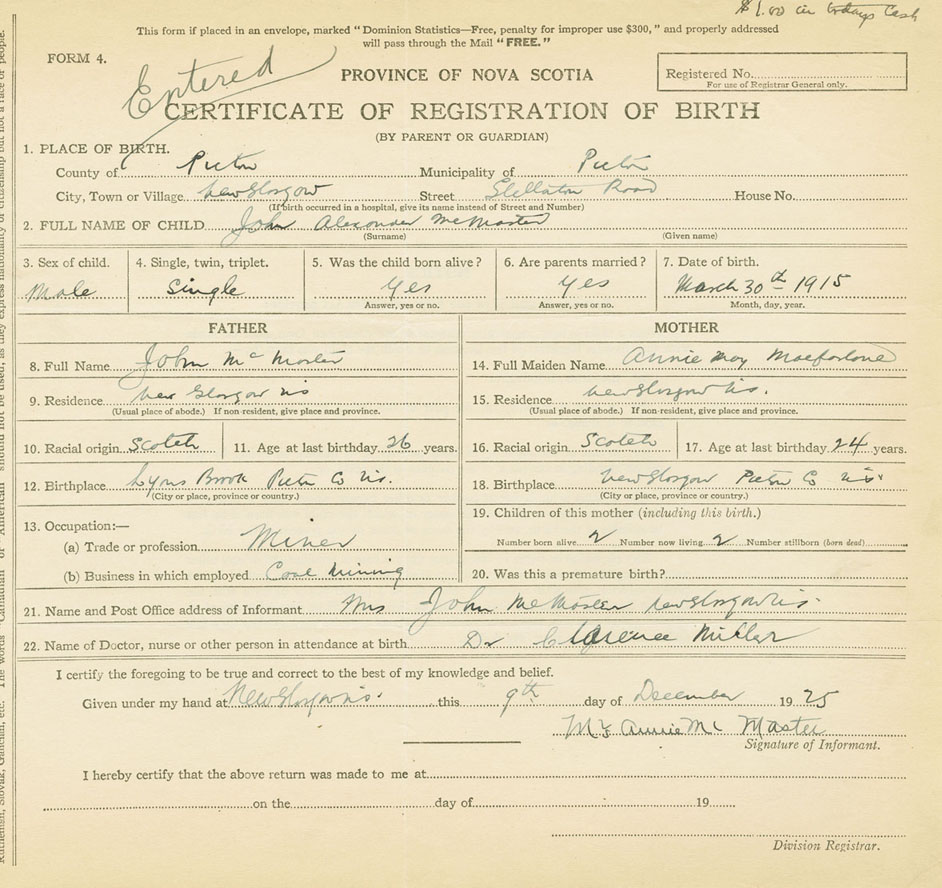 $1.00 in todays Cash
This form if placed in an envelope, marked "Dominion Statistics—Free, penalty for improper use $300," and properly addressed
will pass through the Mail "FREE."
FORM 4.
Entered
PROVINCE OF NOVA SCOTIA
Registered No.
For use of Registrar General only.
CERTIFICATE OF REGISTRATION OF BIRTH
(BY PARENT OR GUARDIAN)
1. PLACE OF BIRTH.
County of Pictou Municipality of Pictou
City, Town or Village New Glasgow Street Stellarton Road House No.
(If birth occurred in a hospital, give its name instead of Street and Number)
2. FULL NAME OF CHILD John Alexander McMaster
(Surname) (Given name)
3. Sex of child. 4. Single, twin, triplet. 5. Was the child born alive? 6. Are parents married? 7. Date of birth.
Male Single Yes Yes March 30th 1915
Answer, yes or no. Answer, yes or no. Month, day, year.
FATHER MOTHER
8. Full Name John McMaster
9. Residence New Glasgow NS
(Usual place of abode.) If non-resident, give place and province.
10. Racial origin Scotch 11. Age at last birthday 26 years.
12. Birthplace Lyons Brook Pictou Co N.S.
(City or place, province or country.)
13. Occupation:—
(a) Trade or profession Miner
(b) Business in which employed Coal Mining
14. Full Maiden Name Annie May Macfarlane
15. Residence New Glasgow N.S.
(Usual place of abode.) If non-resident, give place and province.
16. Racial origin Scotch 17. Age at last birthday 24 years.
18. Birthplace New Glasgow Pictou Co N.S.
(City or place, province or country.)
19. Children of this mother (including this birth.)
Number born alive 2 Number now living 2 Number stillborn (born dead)
20. Was this a premature birth?
21. Name and Post Office address of Informant Mrs John McMaster New Glasgow N.S.
22. Name of Doctor, nurse or other person in attendance at birth Dr Clarence Miller
I certify the foregoing to be true and correct to the best of my knowledge and belief.
Given under my hand at New Glasgow N.S. this 9th day of December 1925
Annie Mc Master
Signature of Informant.
I hereby certify that the above return was made to me at
on the day of 19
Division Registrar.